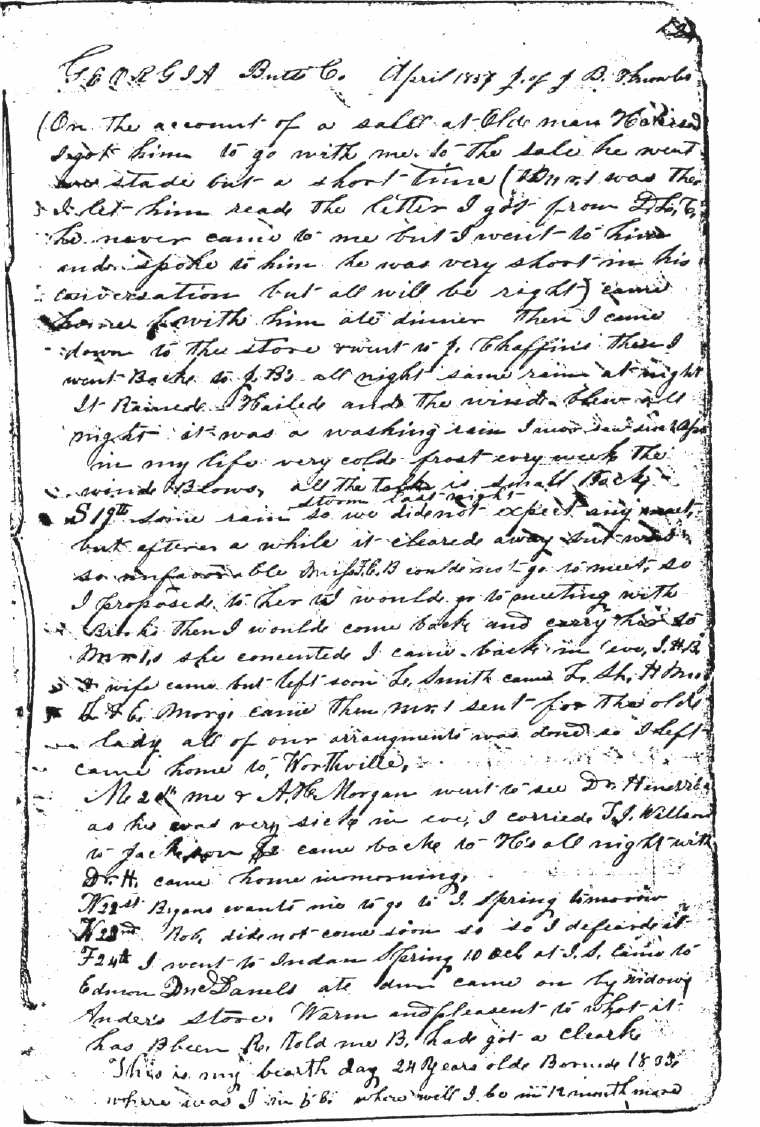 GEORGIA Butts Co. April 1857 J. of J B. Thrower
(On the account of a sale at Olde man
I got him to go with me to the sale he went
stade but a short time ( was ther
I let him reade the letter I got from
he never came to me but I went to him
and spoke to him he was very short in his
conversation but all will be right) came
home with him ate dinner then I came
down to the store & went to J. Chaffin's then I
went Back to J. B's all night same rain at night
It Rained Hailed and the winde blew all
night it was a washing rain I never saw since
in my life very colde frost evry week the
winde Blows, all the is small Back
storm last night
S 19th some rain so we dide not expect any meet,
but after a while it cleared away but was
so unfavorable Miss T. C. B coulde not go to meet, so
I proposed to her I would go to meeting with
then I woulde come back and carry her to
she concented I came back in eve, J. H. B.
& wife came but left soon L. Smith came
Morg. came then sent for the olde
lady all of our arrangments was done so I left
came home to Worthville,
Mo 20th me & A. H. Morgan went to see Dr.
as he was very sick in eve, I corriede T. J. Willson
to Jackson & came backe to H's all night with
Dr. H. came home in morning.
W 22st Byans wants me to go to I. Spring tomorow
23nd Rob, dide not come soon so so I it
F 24th I went to Indan Spring 10 ocl at I. S. came to
Edmon Danels ate din came on by widow
Ander's store. Warm and pleasent to what it
has Bheen R. told me B, hade got a clearke
This is my bearth day 24 Years olde Bornde 1833
where was I in 56. where will I be in 12 month more